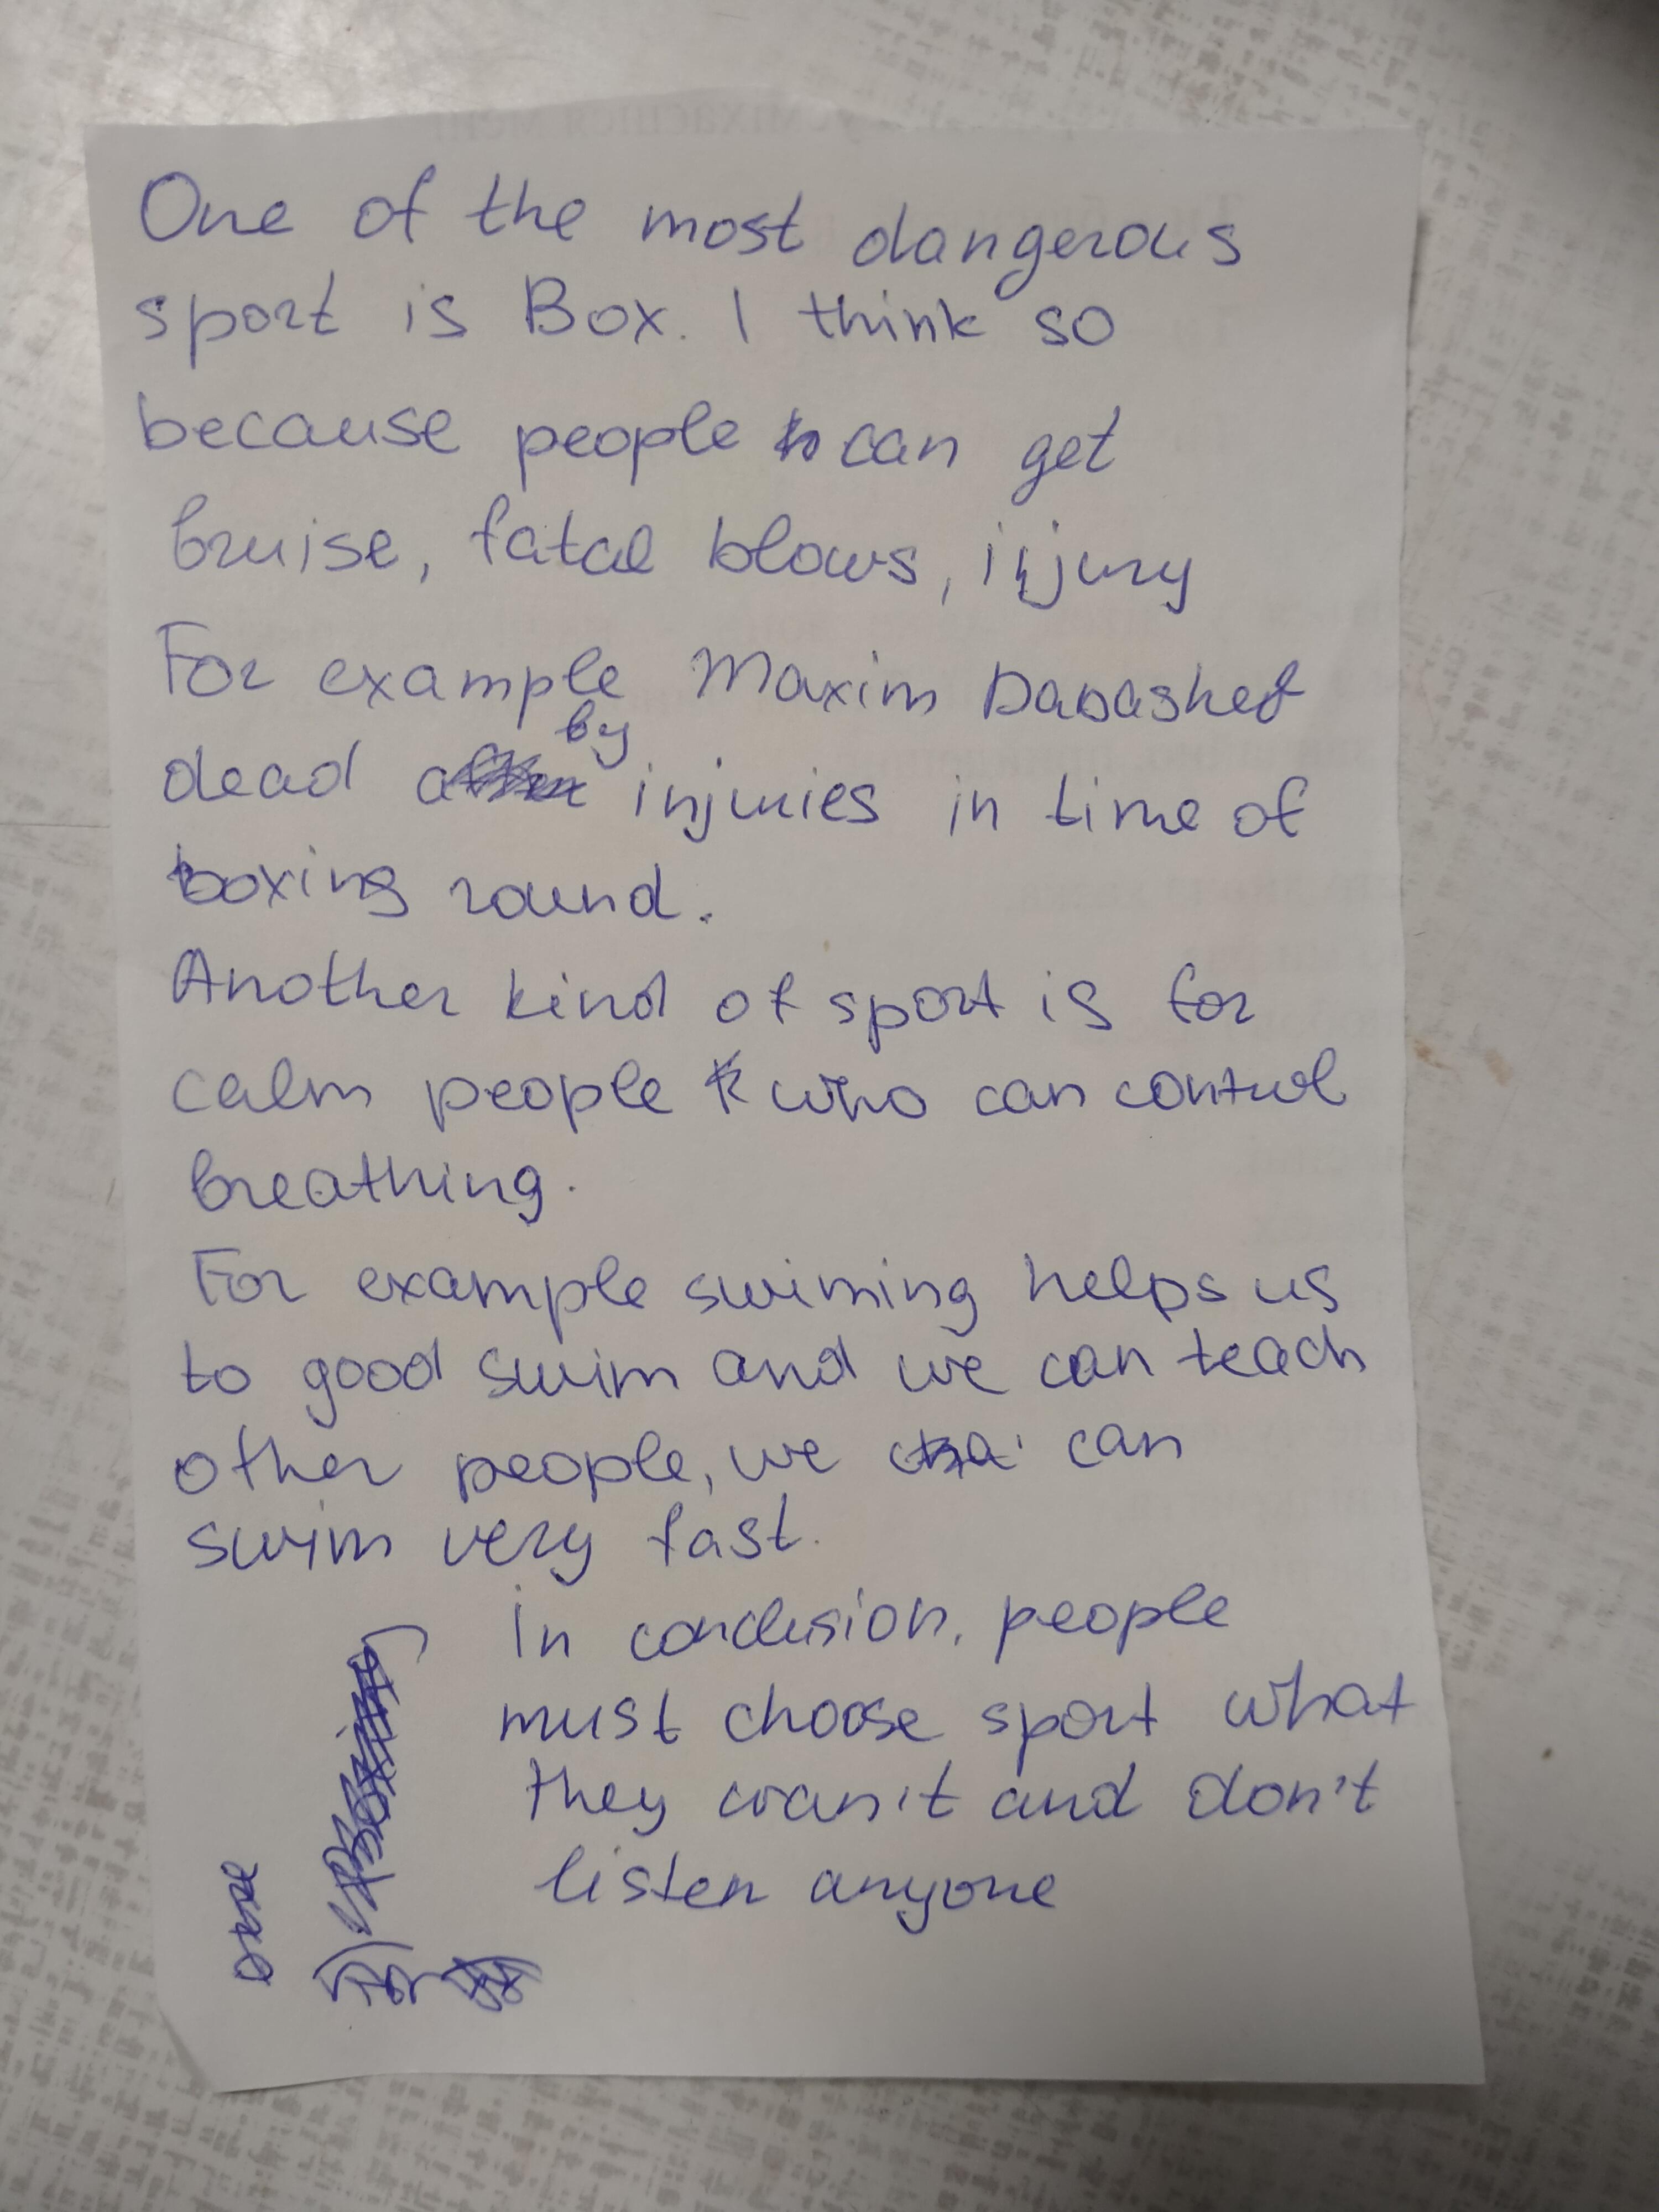 One of the most dangerous
sport is Box. I think so
because people can get
bruise, fatal blows, injury
For example Maxim Dadashef
dead by injuries in time of
boxing round.
Another kind of sport is for
calm people who can control
breathing.
For example swiming helps us
to good swim and we can teach
other people, we can
swim very fast.
In conclusion, people
must choose sport what
they wan't and don't
listen anyone